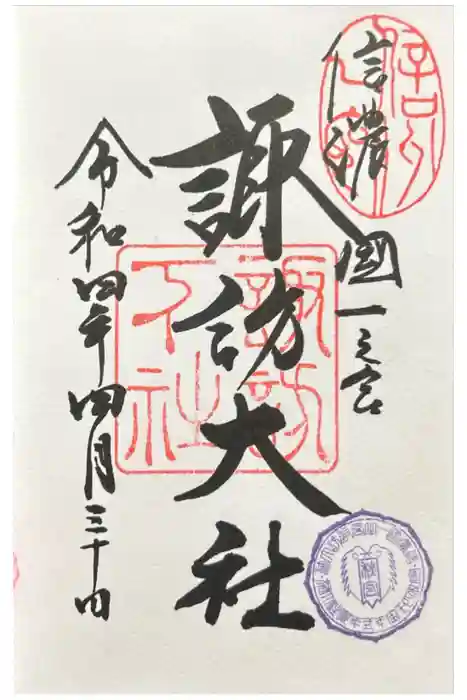 信濃國一之宮
諏訪大社
令和四年四月三十日
諏訪
下社
秋宮